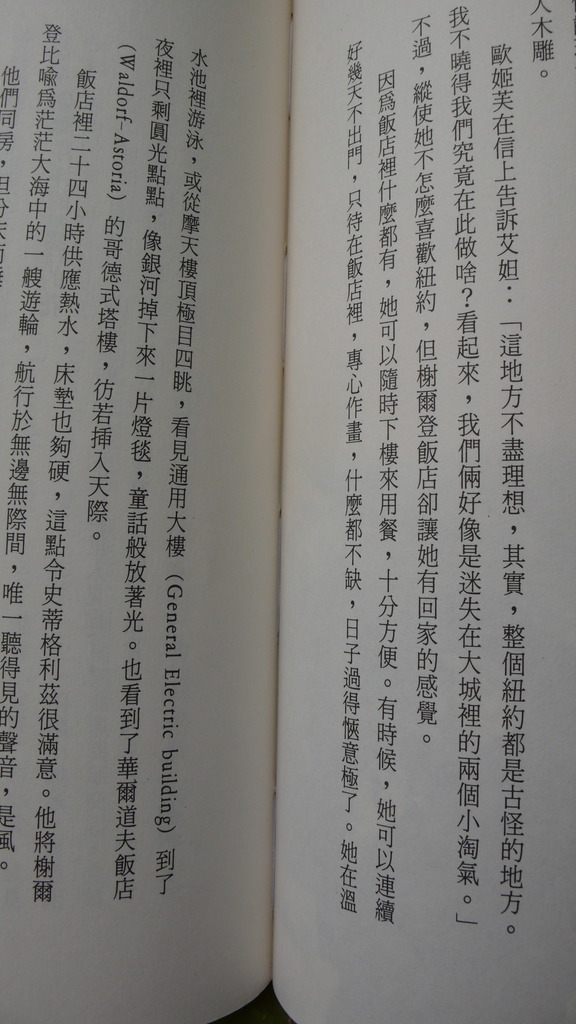 人木雕。
歐姬芙在信上告訴艾妲：「這地方不盡理想，其實，整個紐約都是古怪的地方。
我不曉得我們究竟在此做啥？看起來，我們倆好像是迷失在大城裡的兩個小淘氣。」
不過，縱使她不怎麼喜歡紐約，但榭爾登飯店卻讓她有回家的感覺。
因爲飯店裡什麼都有，她可以隨時下樓來用餐，十分方便。有時候，她可以連續
好幾天不出門，只待在飯店裡，專心作畫，什麼都不缺，日子過得愜意極了。她在溫
水池裡游泳，或從摩天樓頂極目四眺，看見通用大樓（General Electric building）到了
夜裡只剩圓光點點，像銀河掉下來一片燈毯，童話般放著光。也看到了華爾道夫飯店
（Waldorf-Astoria）的哥德式塔樓，彷若揷入天際。
飯店裡二十四小時供應熱水，床墊也夠硬，這點令史蒂格利茲很滿意。他將榭爾
登比喩爲茫茫大海中的一艘遊輪，航行於無邊無際間，唯一聽得見的聲音，是風。
他們同房，但分床而睡